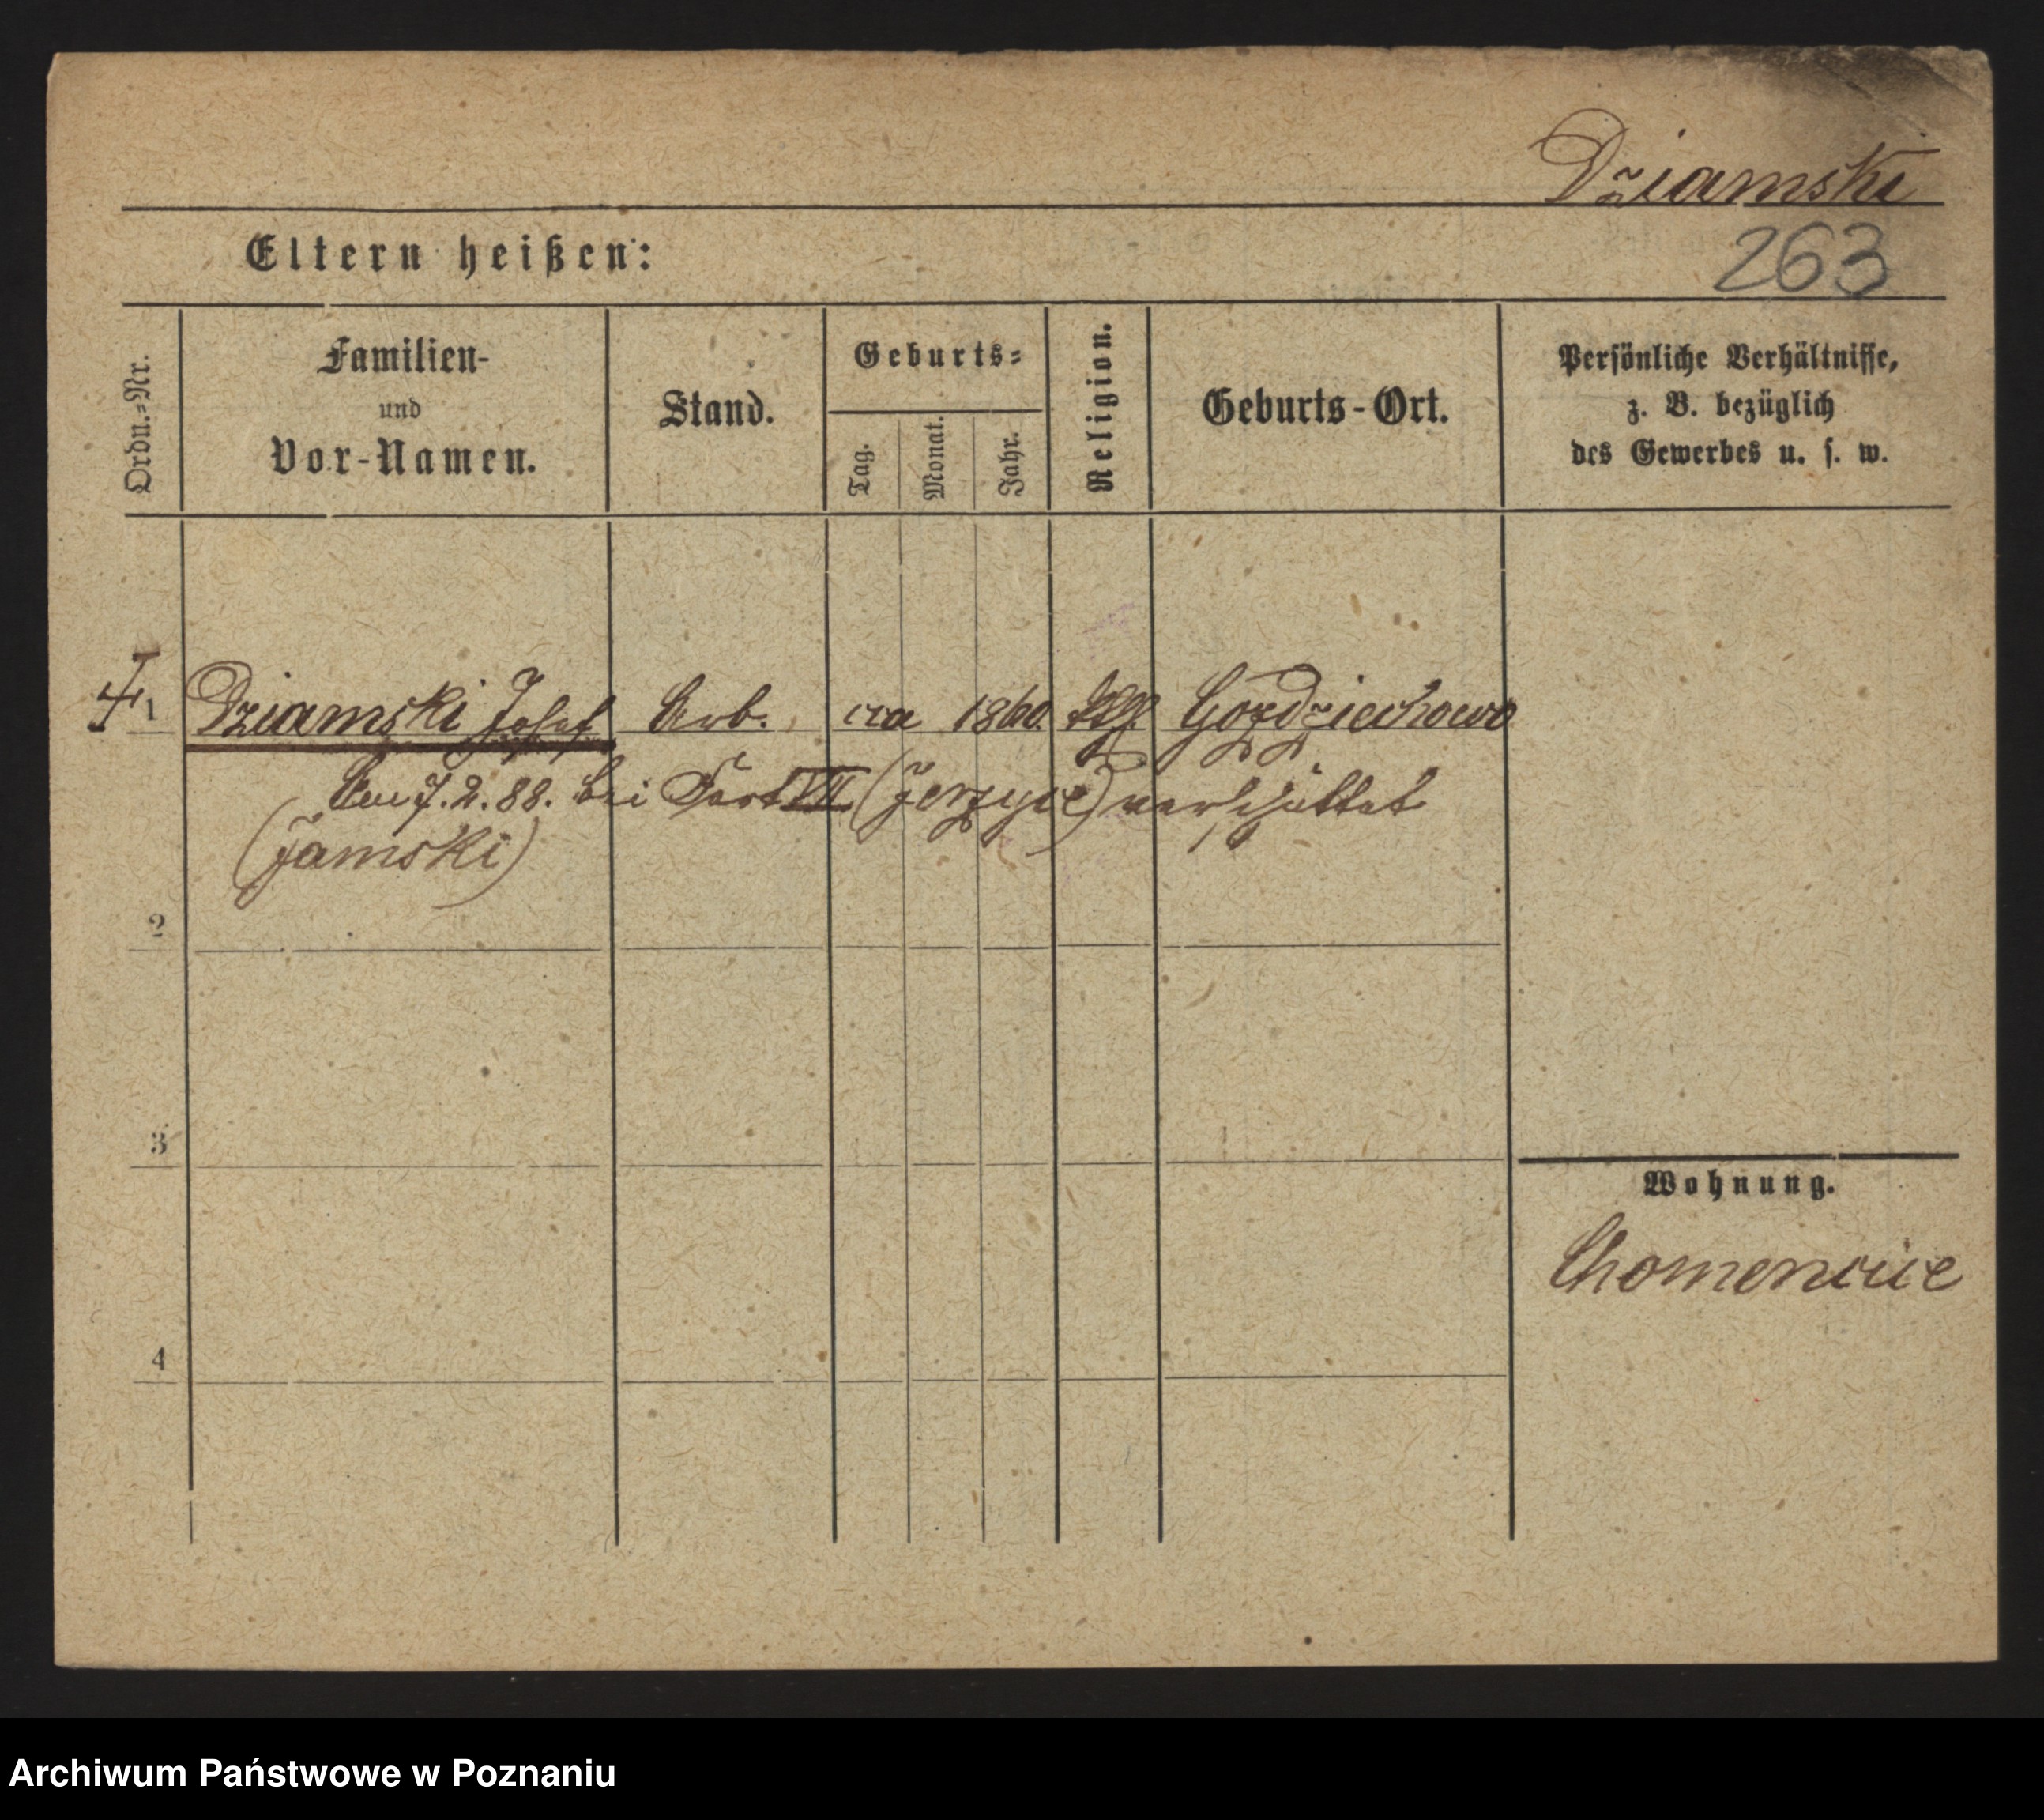 Dziamski
263
Eltern heißen:
Ordn.=Nr.
Familien-
und
Vor-Namen.
Stand.
Geburts=
Tag.
Monat.
Jahr.
Religion.
Geburts-Ort.
Persönliche Verhältnisse,
z. B. bezüglich
des Gewerbes u. s. w.
1 Dziamski Josef Arb. cca 1860. Gozdziechowo
Am 7.2.88. bei Fort VII (Jerzyce) verschüttet
(Jamski)
2
3
Wohnung.
Chomencice
4
Archiwum Państwowe w Poznaniu